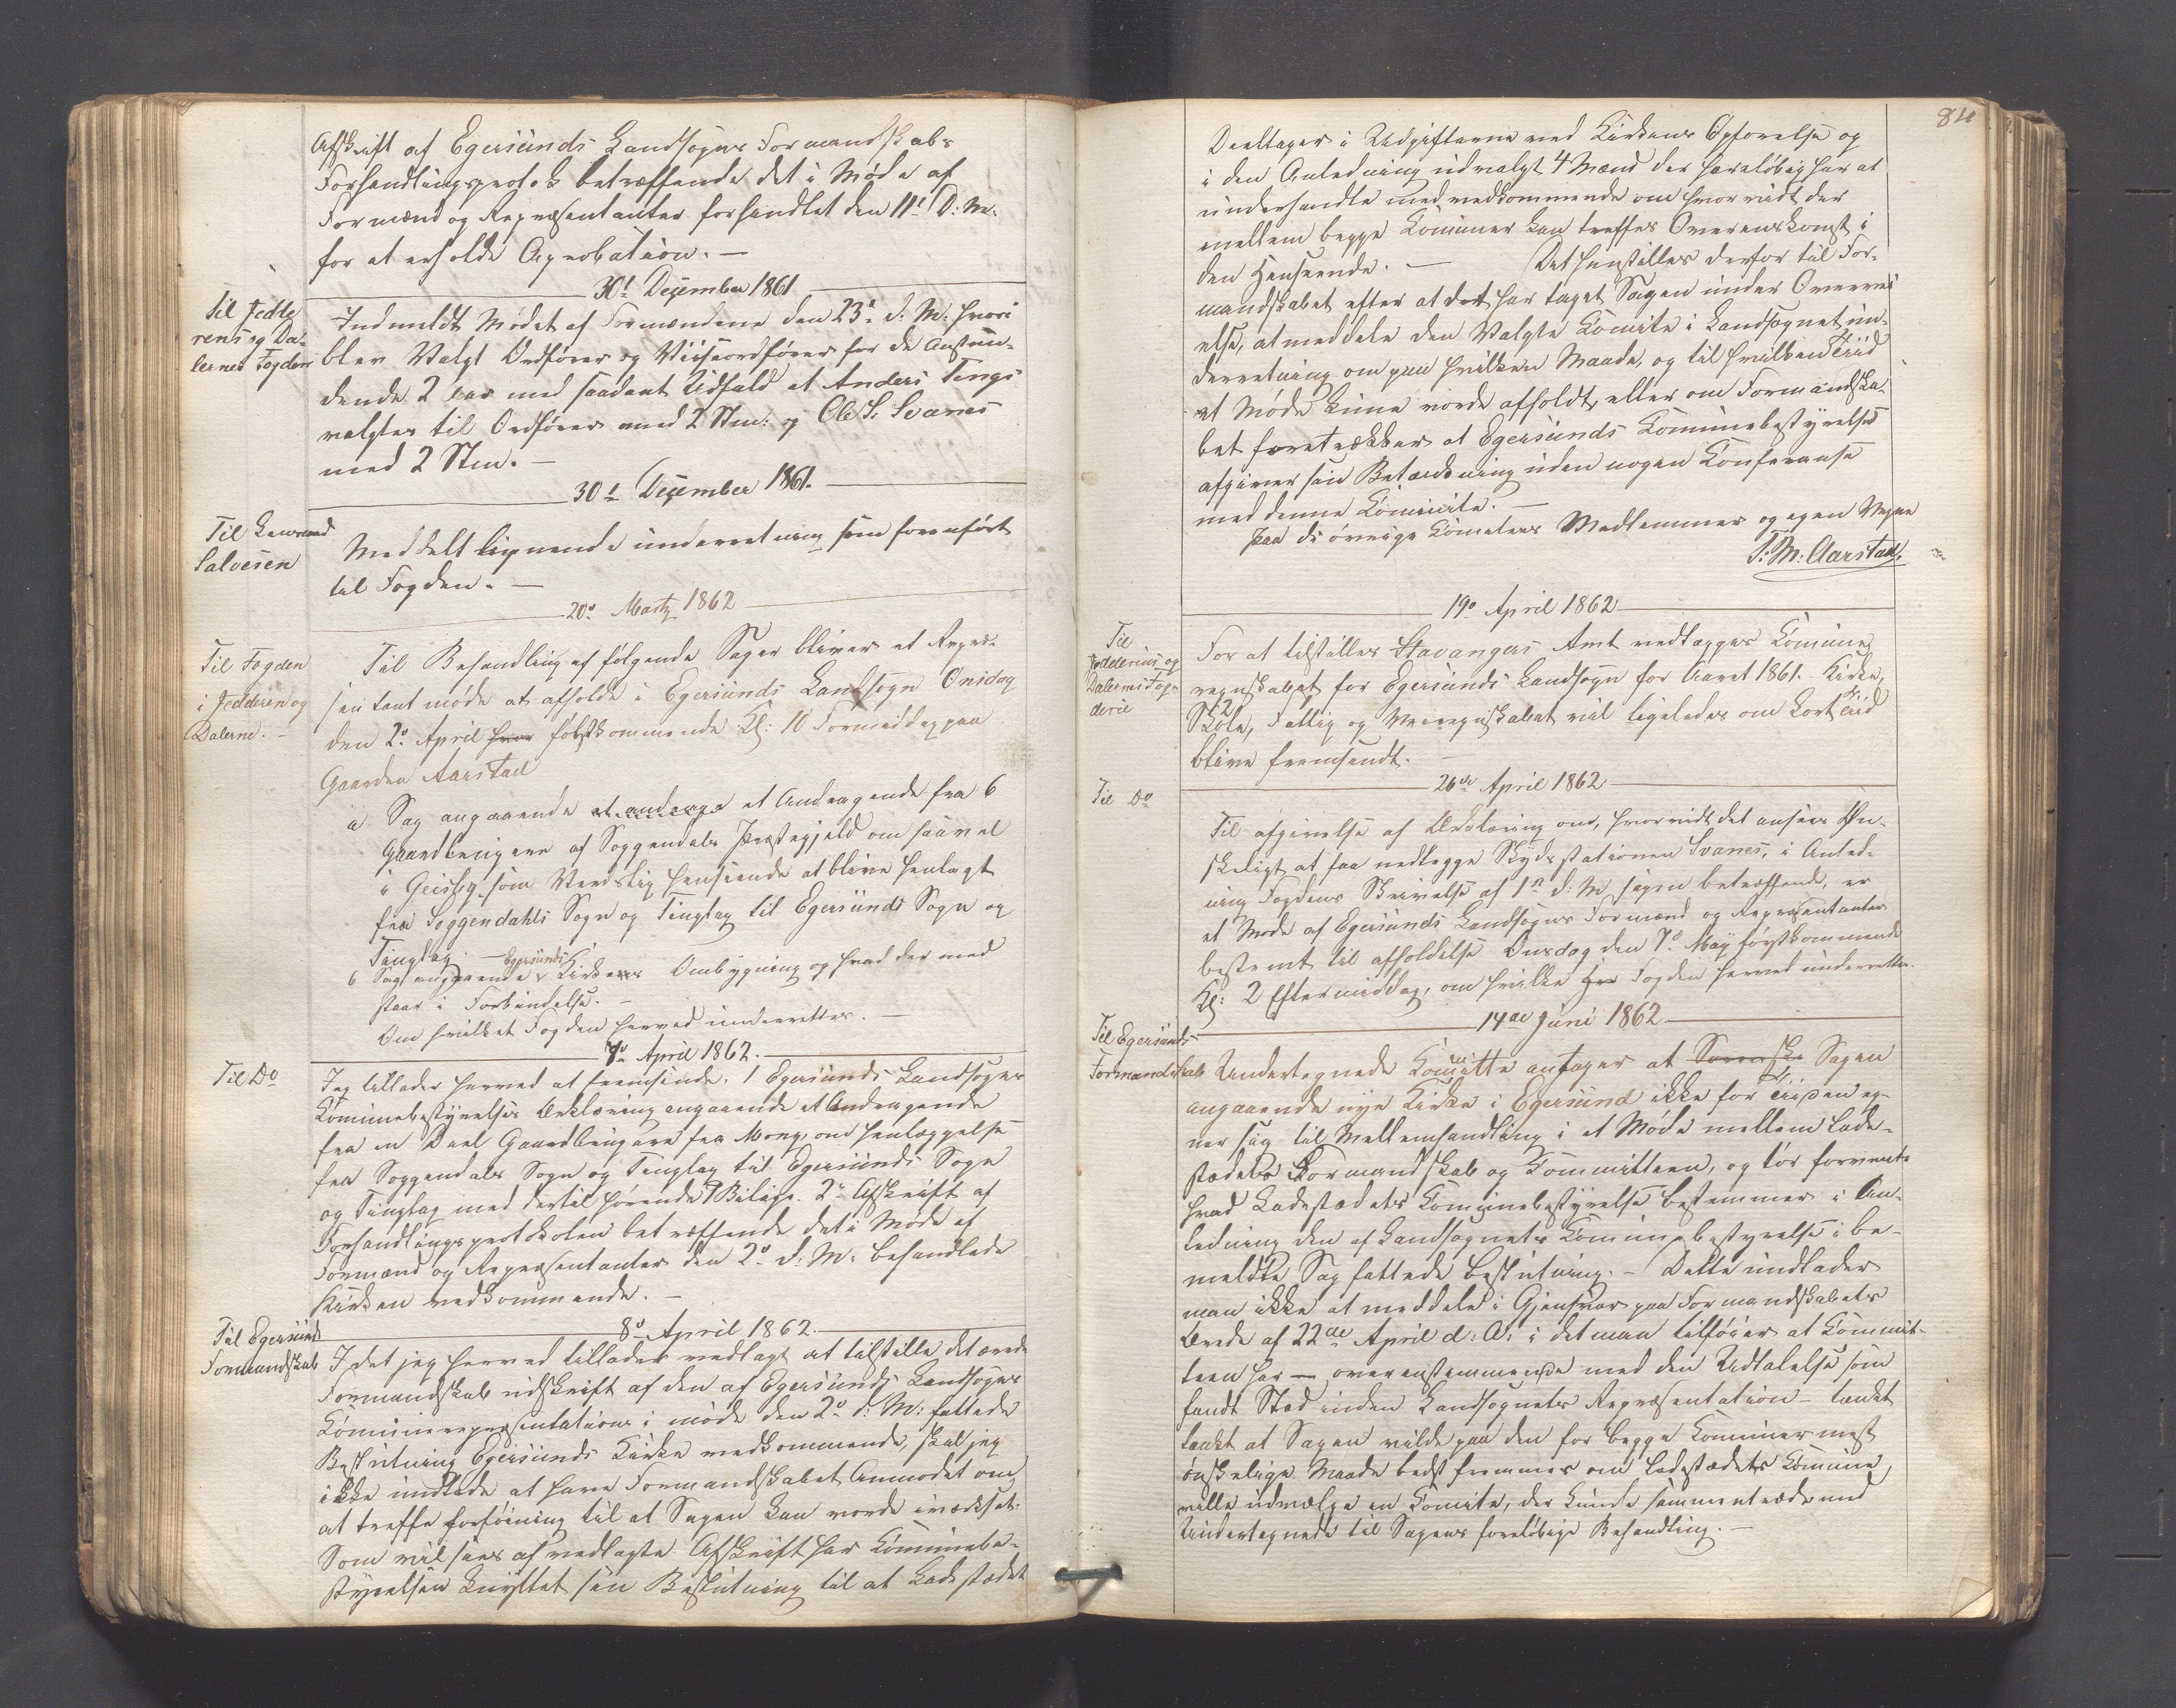 Afskrift af Egersunds Landsogns Formandskabs
Forhandlingsprotok betræffende det i Møde af
Formænd og Repræsentanter forhandlet den 11t D: M.
for at erholde Aprobation. —
30t Desember 1861
Til Jedde
rens og Da-
lernes Fogderi
Indmeldt Mødet af Formændene den 23de d. M. hvori
blev Valgt Ordfører og Viiseordfører for de Anstun-
dende 2 Aar med saadant Udfald at Anders Tengs
valgtes til Ordfører med 2 Stm: og Ole S. Svanes
med 2 Stm. —
30t Desember 1861.
Til Lensmand
Salvesen
Meddelt lignende underretning som foranført
til Fogden. —
20de Martz 1862
Til Fogden
i Jedderen og
Dalerne. —
Til Behandling af følgende Sager bliver et Repræ-
sentantmøde at afholde i Egersunds Landsogn Onsdag
den 2de April hvor førstkommende Kl: 10 Formiddag paa
Gaarden Aarstad
a Sag angaaende et andrage et Andragende fra 6
Gaardbrugere af Soggendals Præstegjeld om saavel
i Geistlig som Verdslig henseende at blive henlagt
fra Soggendahls Sogn og Tinglag til Egersunds Sogn og
Tinglag. —
Egersunds
b Sag angaaende Kirkens Ombygning og hvad der med
staar i Forbindelse. —
Om hvilket Fogden herved underrettes. —
7de April 1862.
Til Do
Jeg tillader herved at fremsende. 1 Egersunds Landsogns
Kommunebestyrelses Erklæring angaaende et Andragende
fra en Deel Gaardbrugere fra Mong, om henlæggelse
fra Soggendals Sogn og Tinglag til Egersunds Sogn
og Tinglag med dertil hørende 7 Bilage. 2de Afskrift af
Forhandlingsprotokolen betræffende det i Møde af
Formænd og Repræsentanter den 2de d. M. behandlede
Kirken vedkommende. —
8de April 1862
Til Egersund
Formandskab
I det jeg herved tillader vedlagt at tilstille det ærede
Formandskab udskrift af den af Egersunds Landsogns
Kommunerepræsentations i møde den 2de d: M: fattede
Beslutning Egersunds Kirke vedkommende, skal jeg
ikke undlade at have Formandskabet Anmodet om
at treffe forføining til at Sagen kan worde iværksat.
Som vil sees af vedlagte Afskrift har Kommunebe-
styrelsen knyttet sin Beslutning til at Ladestædet
84
Deeltager i Udgifterne ved Kirkens Opførelse og
i den Anledning udvalgt 4 Mænd der foreløbig har at
underhandle med vedkommende om hvorvidt der
mellem begge Kommuner kan treffes Overenskomst i
den Henseende. — Det henstilles derfor til For-
mandskabet efter at det har taget Sagen under Overvei
else, at meddele den Valgte Komite i Landsognet un-
derretning om paa hvilken Maade, og til hvilken Tiid
et Møde kune vorde afholdt, eller om Formandska-
bet foretrækker at Egersunds Kommunebestyrelse
afgiver sin Betænkning uden nogen Konferanse
med denne Kommite. —
Paa de øvrige Komiteens Medlemmer og egen Vegne
T. M. Aarstad,
19de April 1862
Til
Jedderens og
Dalernes Fog-
derie
For at tilstilles Stavangers Amt vedlægges Kommune
regnskabet for Egersunds Landsogn for Aaret 1861. Kirke,
Skole, Fattig og Veiregnskabet vil ligeledes om kort Tiid
blive fremsendt. —
26de April 1862
Til Do
Til afgivelse af Erklæring om, hvorvidt det ansees Øn-
skeligt at faa nedlægge Skydsstationen Svanes, i Anled-
ning Fogdens Skrivelse af 1ste d: M sagen betræffende, er
et Møde af Egersunds Landsogns Formænd og Repræsentanter
bestemt til afholdelse Onsdag den 7de May førstkommende
Kl: 2 Eftermiddag, om hvilke Hr Fogden herved underrettes.
14de Juni 1862
Til Egersunds
Formandskab
Undertegnede Komitte antager at Sagen
angaaende nye Kirke i Egersund ikke for Tiiden eg-
ner sig til Mellemhandling i et Møde mellem Lade-
stædets Formandskab og Kommitteen, og tør forvente
hvad Ladestædets Kommunebestyrelse bestemmer i An-
ledning den af Landsognets Kommunebestyrelse i be-
meldte Sag fattede beslutning. — Dette undlader
man ikke at meddele i Gjensvar paa Formandskabets
Ærede af 22de April d: A: i det man tilføier at Kommit-
teen har — overenstemmende med den Udtalelse som
fandt Sted inden Landsognets Repræsentation — tænkt
tænkt at Sagen vilde paa den for begge Kommuner mest
ønskelige Maade bedst fremmes om Ladestædets Kommune
ville udvælge en Komite, der kunde sammentræde med
Undertegnede til Sagens foreløbige Behandling. —